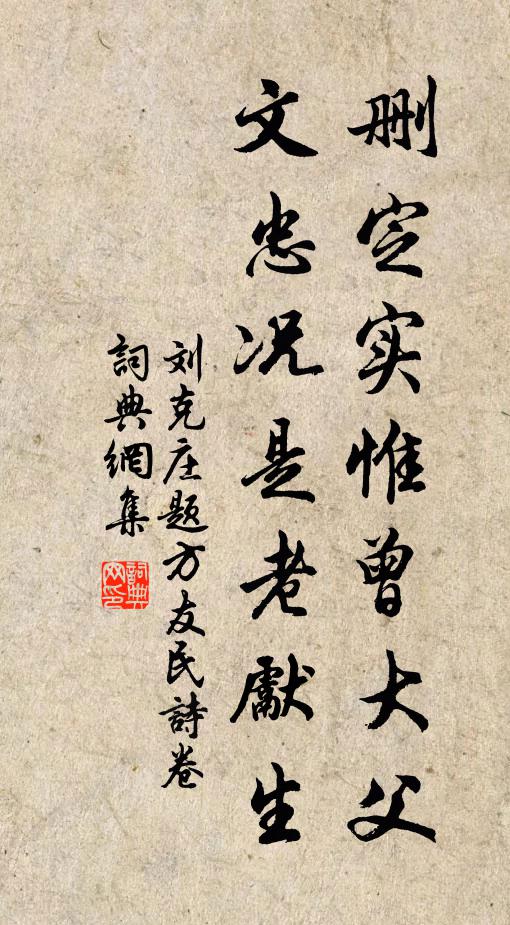 删定实惟曾大父
文忠况是老獻生
刘克庄题方友民詩卷
詞典網集
詞典
网印